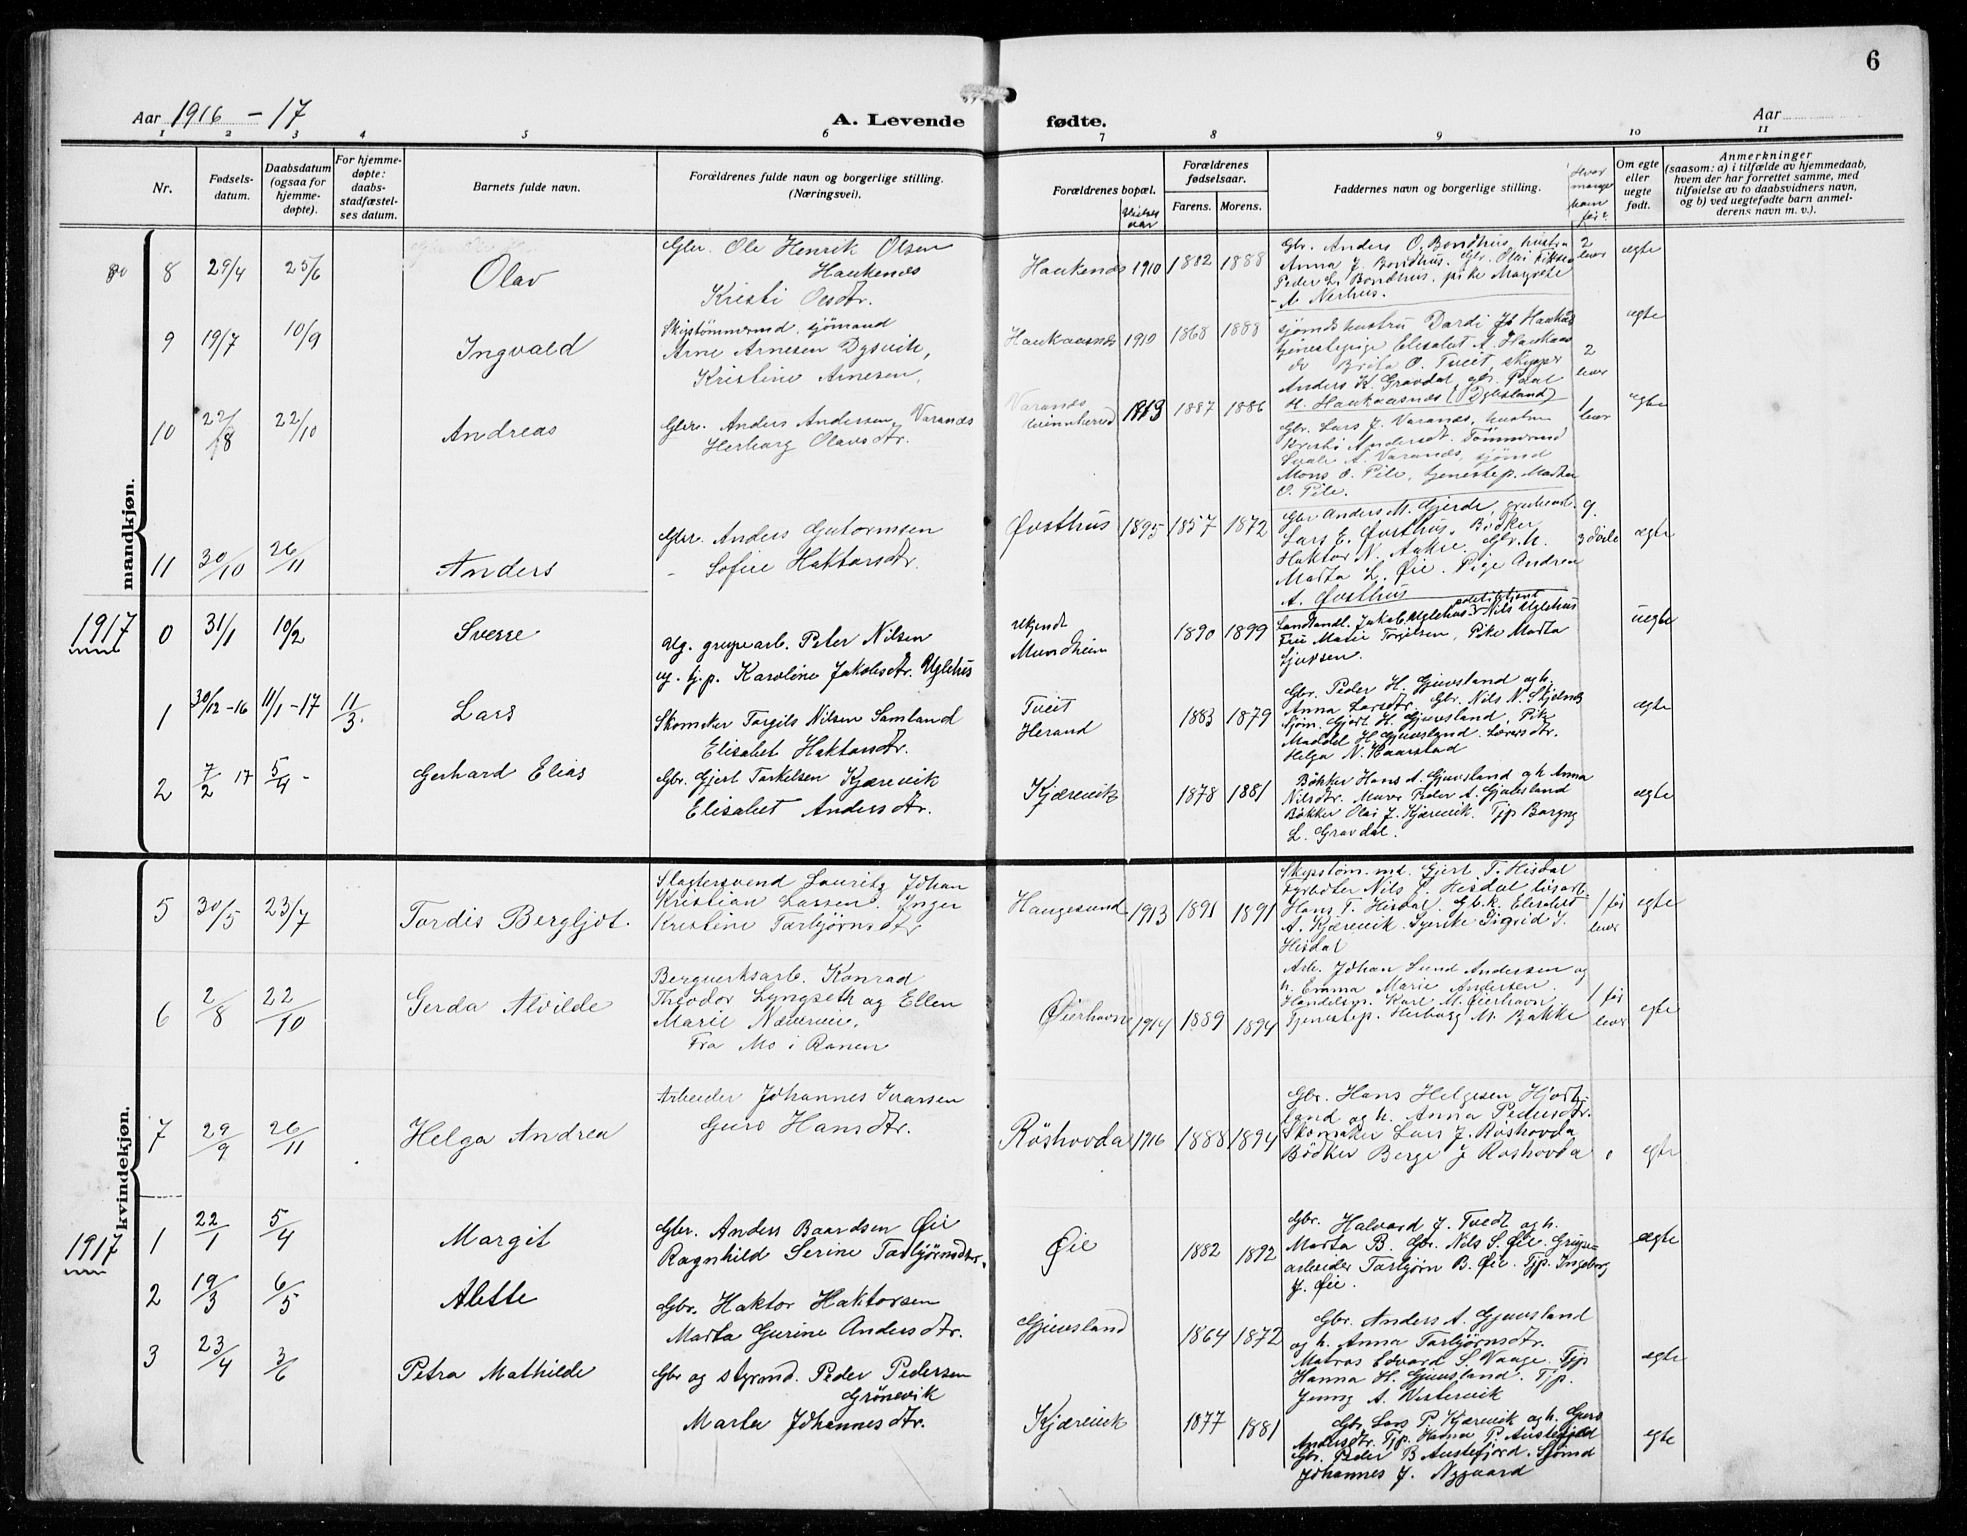 6
Aar 1916 - 17
A. Levende fødte.
Aar
1 2 3 4 5 6 7 8 9 10 11
Nr.
Fødsels-
datum.
Daabsdatum
(ogsaa for
hjemme-
døpte).
For hjemme-
døpte:
daabs-
stadfæstel-
ses datum.
Barnets fulde navn.
Forældrenes fulde navn og borgerlige stilling.
(Næringsvei).
Forældrenes bopæl.
Vielses
aar
Forældrenes
fødselsaar.
Farens. Morens.
Faddernes navn og borgerlige stilling.
Hvor
mange
barn
før?
Om egte
eller
uegte
født.
Anmerkninger
(saasom: a) i tilfælde av hjemmedaab,
hvem der har forrettet samme, med
tilføielse av to daabsvidners navn,
og b) ved uegtefødte barn anmel-
derens navn m. v.).
mandkjøn.
8 29/4 25/6 Olav
Gbr. Ole Henrik Olsen
Haukenæs
Kristi Olsdtr.
Haukenæs 1910 1882 1888
Gbr. Anders O. Bondhus, hustru
Anna J. Bondhus. Gbr. Olai
Peder L. Bondhus, pike Margrete
A. Nerhus.
2
lever
egte
9 19/7 10/9 Ingvald
Skipstømmermd. sjømand
Arne Arnesen Dysvik,
Kristine Arnesen,
Haukaasnæs 1910 1868 1888
sjømdshustru Dardi Js Haukås
tjenestepige Elisabet A. Haukaas
do Brita O. Tveit, skipper
Anders K. Gravdal, gbr. Paal
H. Haukaasnæs (Dysland)
2
lever
egte
10 22/8 22/10 Andreas
Gbr. Anders Andersen Varanæs
Herborg Olavsdtr.
Varanæs
kvinnherred 1913 1887 1886
Gbr. Lars J. Varanæs, hustru
Kristi Andersdt. Tømmermd
A. Varanæs, sjømd
Mons O. Pile, tjenestep. Martha
O. Pile.
1
lever
egte
11 30/10 26/11 Anders
Gbr. Anders Gutormsen
- Sofie Haktorsdtr.
Øvsthus 1895 1857 1872
Gbr Anders M. Gjerde,
Lars E. Øvsthus. Bødker
Haktor N. Aakre. Gbr. h.
Marta L. Øie. Pige Andrea
A. Øvsthus
9.
3 døde
ægte
1917
0 31/1 10/2 Sverre
Ug. grupearb. Peter Nilsen
ug. tj.p. Karoline Jakobsdtr. Uglehus
ukjendt
Mundheim
1890 1899
Landhandl. Jakob Uglehus politibetjent Nils Uglehus
Fru Marie Torgilsen, Pike Marta
Sjursen.
uegte
1 30/12-16 11/1-17 11/3. Lars
Skomaker Torgils Nilsen Samland
Elisabet Haktorsdtr.
Tveit
Herand
1883 1879
Gbr. Peder H. Gjuvsland og h.
Anna Larsdtr. Gbr. Nils N. Skjelnæs
Sjøm. Gjert H. Gjuvsland. Pik
Maddel H. Gjuvsland. Lærersdtr.
Helga N. Haarstad
ægte
2 7/2 17 5/4 - Gerhard Elias
Gbr. Gjert Torkelsen Kjærevik
Elisabet Andersdtr.
Kjærevik
1878 1881
Bøkker Hans A. Gjuvsland og h. Anna
Nilsdtr. Murer Peder A. Gjuvsland
Bøkker Olai J. Kjærevik. Tjp Borgny
L. Gravdal.
ægte
kvindekjøn.
5 30/5 23/7 Tordis Bergljot.
Slagtersvend Lauritz Johan
Kristian Larsen. Inger
Kristine Torbjørnsdtr
Haugesund 1913 1891 1891
Skipstøm.md. Gjert T. Hisdal
Fyrbøter Nils T. Hisdal
Hans T. Hisdal. Gbk. Elisabet
A. Kjærevik. Syerske Sigrid T.
Hisdal
1 før
lever
egte
6 2/8 22/10 Gerda Alvilde
Bergverksarb. Konrad
Theodor Lyngseth og Ellen
Marie Næverveie.
Fra Mo i Ranen
Øierhavn 1914 1889 1894
Arb. Johan Lund Andersen og
h. Emma Marie Andersen.
Handelsm. Karl M. Øierhavn
Tjenestep. Herborg M. Bakke
1 før
lever
egte
7 29/9 26/11 Helga Andrea
Arbeider Johannes Ivarsen
Guro Hansdtr.
Røshovda 1916 1888 1894
Gbr. Hans Helgesen Hjort-
land og h. Anna Pedersdtr.
Skomaker Lars J. Røshovda
Bødker Berge J Røshovda
0
egte
1917
1 22/1 5/4 Margit
Gbr. Anders Baardsen Øie
Ragnhild Serine Torbjørnsdtr.
Øie
1882 1892
Gbr. Halvard J. Tvedt og h.
Marta B. Gbr. Nils S. Øie. Grupe-
arbeider Torbjørn B. Øie. Tjp. Ingeborg
J. Øie.
ægte
2 19/3 6/5 Alette
Gbr. Haktor Haktorsen
Marta Gurine Andersdtr.
Gjuvsland
1864 1872
Gbr. Anders A. Gjuvsland
og h. Anna Torbjørnsdtr.
Matros Edvard S. Vaage. Tjp
Hanna H. Gjuvsland. Tjp.
Jenny A. Westervik
ægte
3 23/4 3/6 Petra Mathilde
Gbr og styrmd. Peder Pedersen
Grønevik
Marta Johannesdtr.
Kjærevik
1877 1881
Gbr. Lars P. Kjærevik og h. Guro
Andersdtr. Tjp. Hanna P. Austefjord
Gbr. Peder B Austefjord. Sjømd
Johannes J. Nygaard
egte